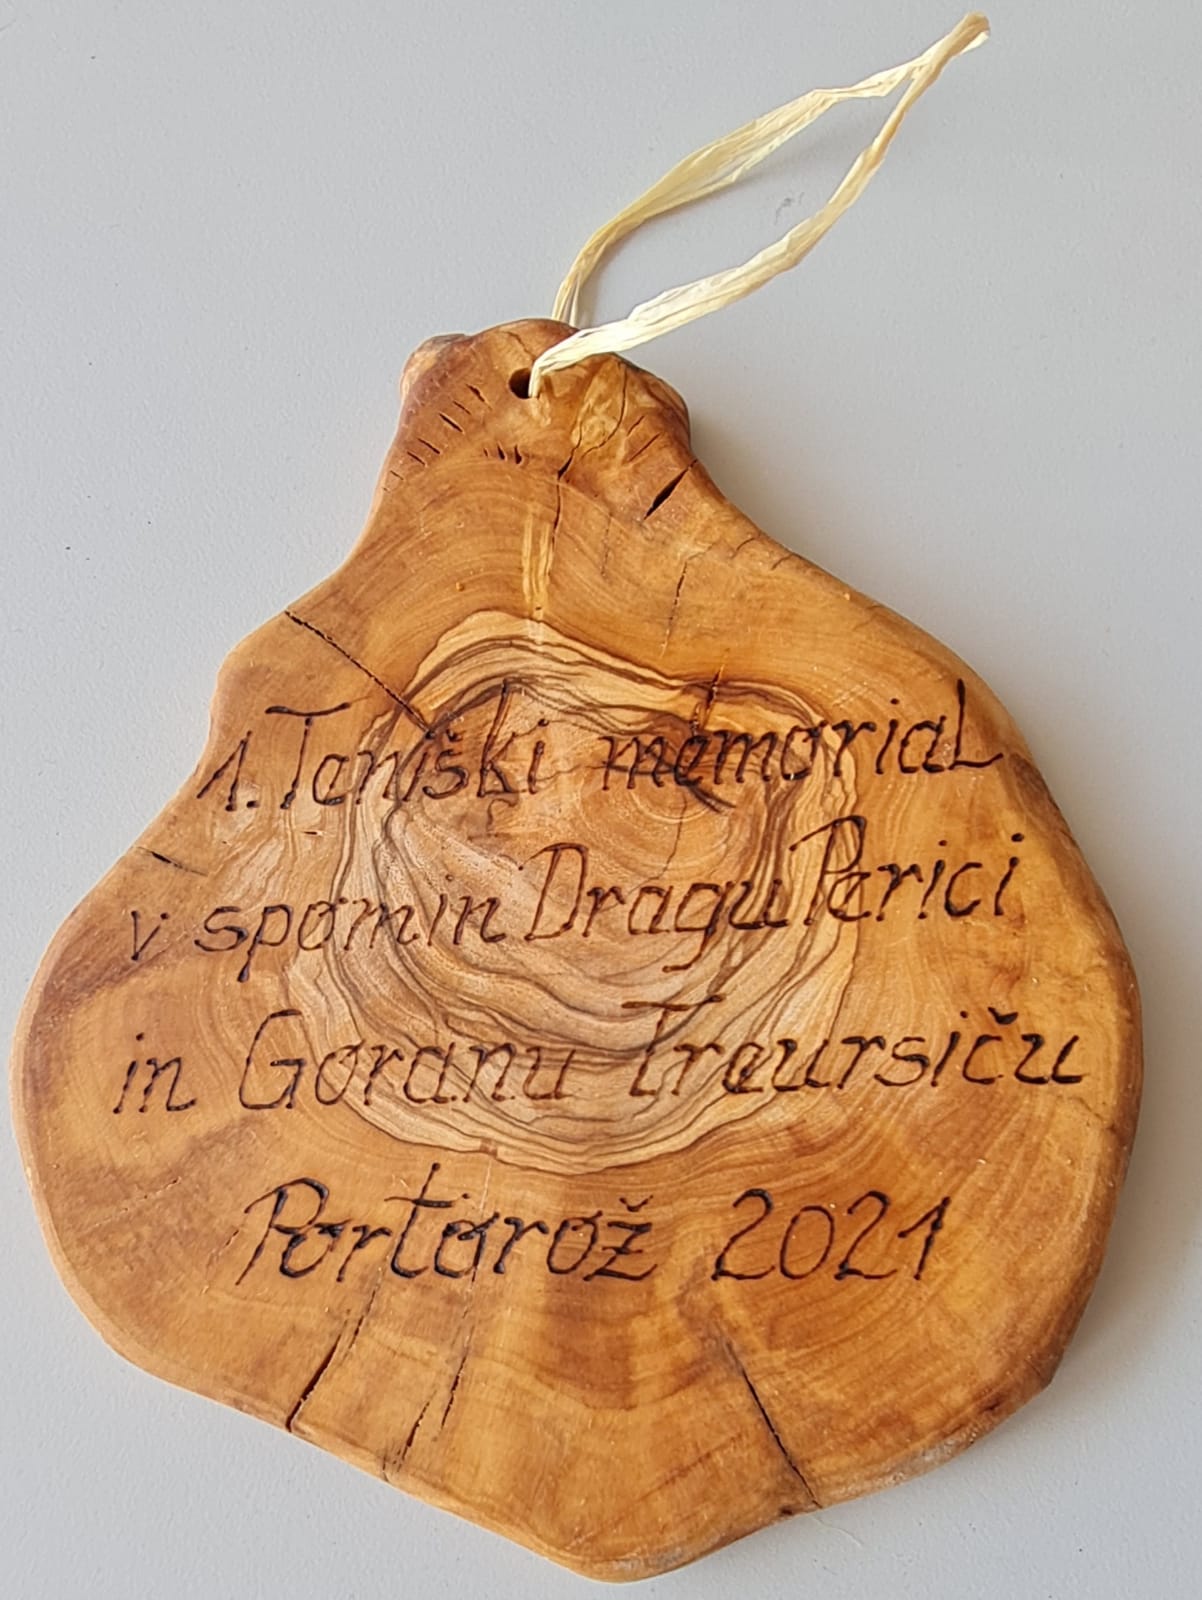 1. Teniški memorial
v spomin Dragu Perici
in Goranu Treursiču
Portorož 2021